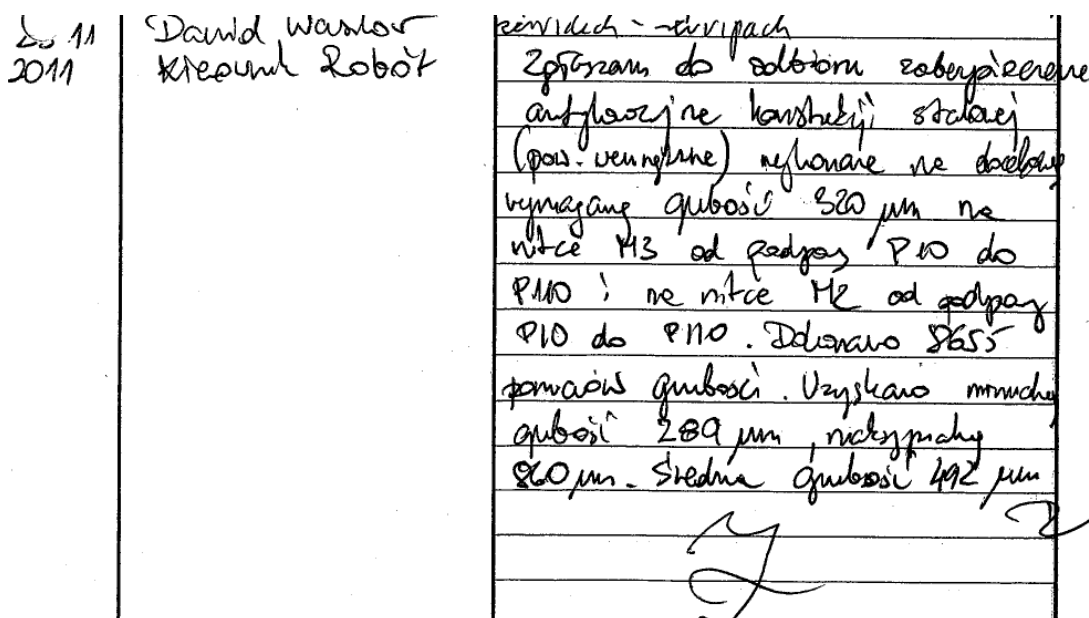 11
2011
Dawid
Kierownik Robót
Zgłaszam do odbioru zabezpieczenie
antykorozyjne konstrukcji stalowej
(pow. wewnętrzne) wykonane na docelową
wymaganą grubość 320 µm na
nitce M3 od podpory P10 do
P110 i na nitce M2 od podpory
P10 do P110. Dokonano 8655
pomiarów grubości. Uzyskano minimalną
grubość 289 µm, maksymalną
860 µm. Średnia grubość 492 µm